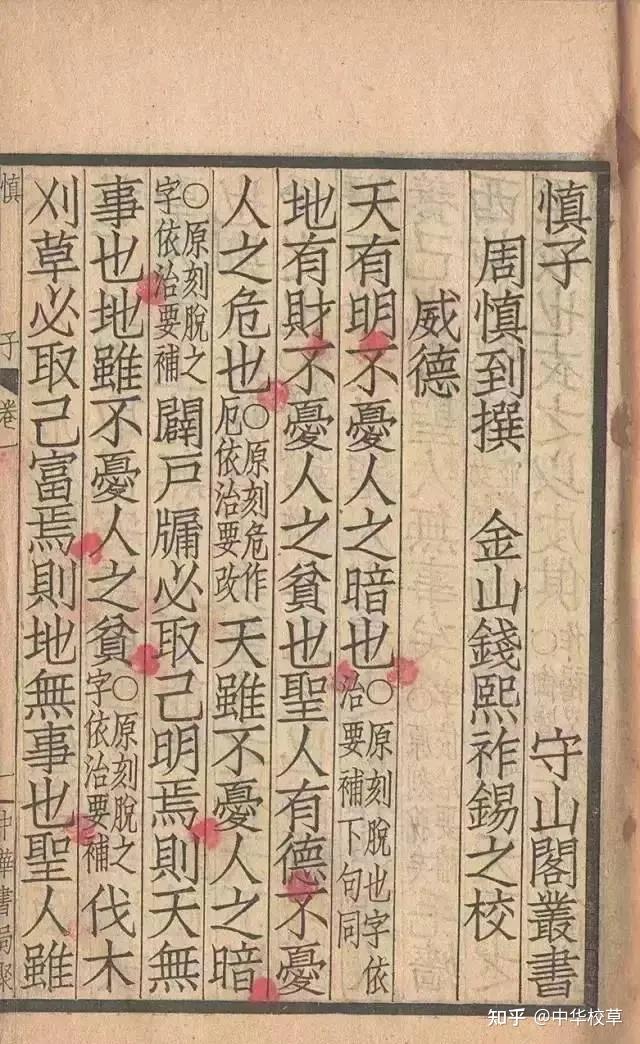 慎子 守山閣叢書
周慎到撰 金山錢熙祚錫之校
威德
天有明不憂人之暗也〇原刻脫也字依治要補下句同
地有財不憂人之貧也聖人有德不憂
人之危也〇原刻危作厄依治要改天雖不憂人之暗
〇原刻脫之字依治要補闢戶牖必取己明焉則天無
事也地雖不憂人之貧〇原刻脫之字依治要補伐木
刈草必取己富焉則地無事也聖人雖
慎 子 卷 一 中華書局聚
知乎 @中华校草